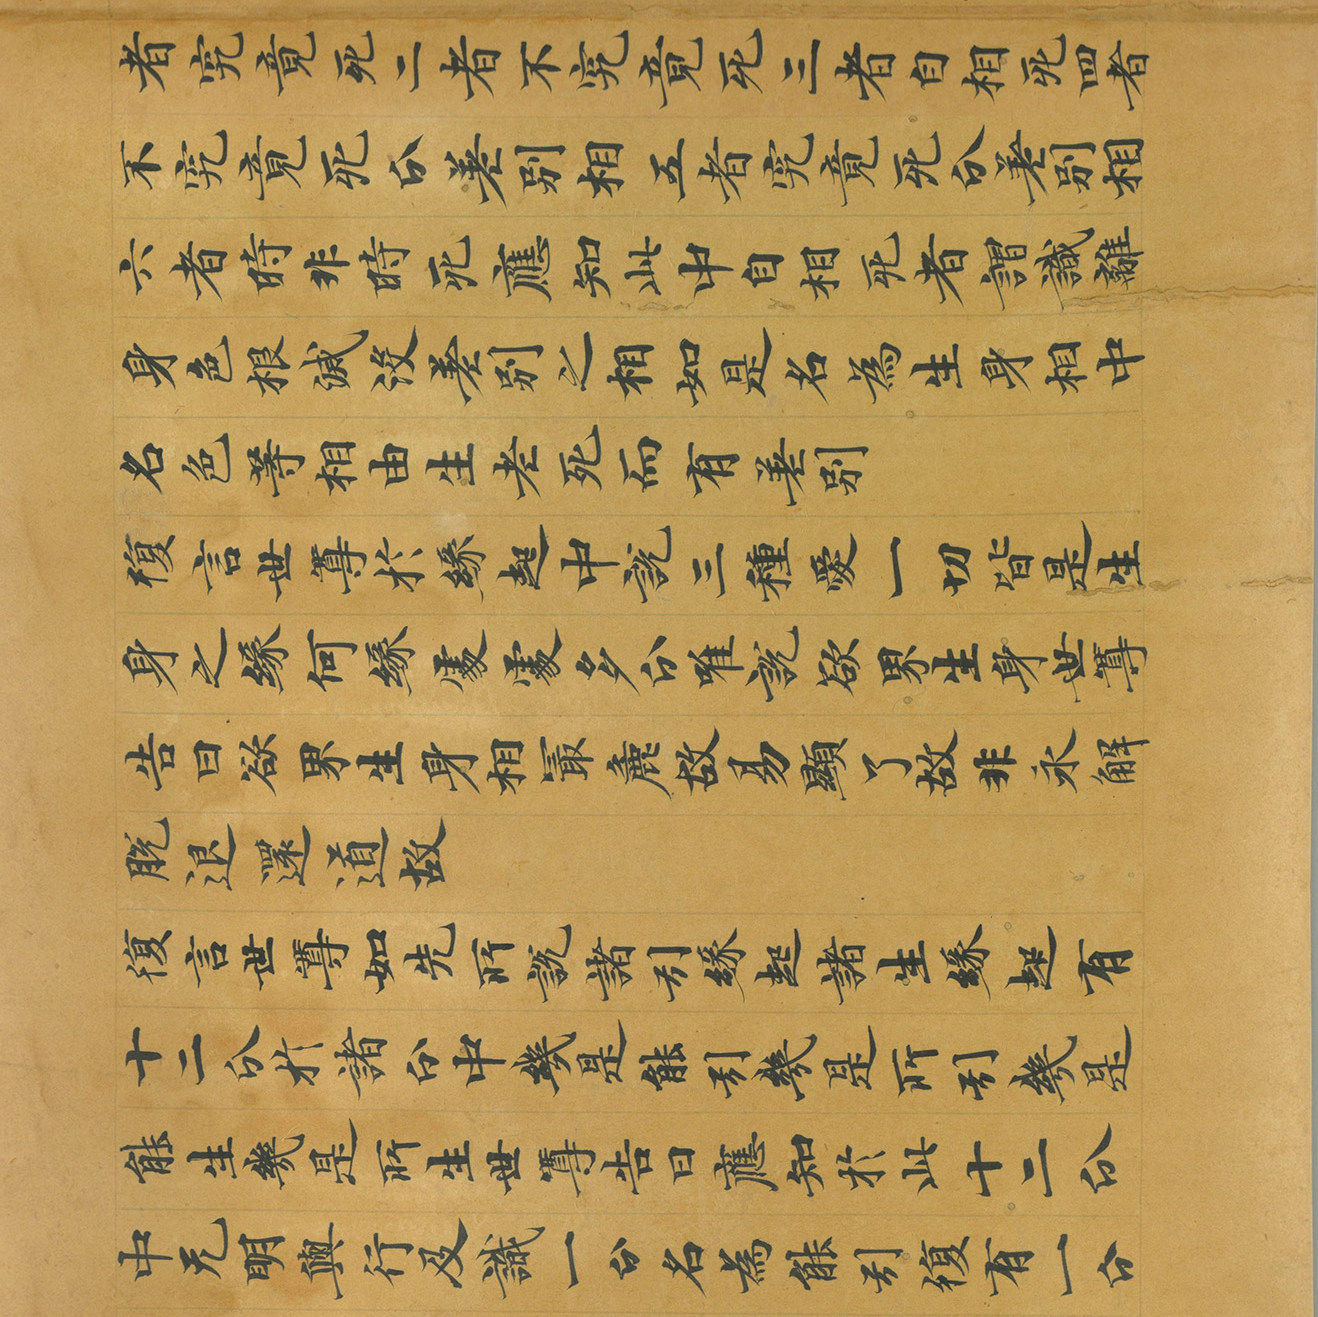 者究竟死二者不究竟死三者自相死四者
不究竟死分差別相五者究竟死分差別相
六者時非時死應知此中自相死者謂識離
身色根滅沒差別之相如是名為生身相中
名色等相由生老死而有差別
復言世尊於緣起中說三種愛一切皆是生
身之緣何緣處處多分唯說欲界生身世尊
告曰欲界生身相最麁故易顯了故非永解
脫退還道故
復言世尊如先所說諸引緣起諸生緣起有
十二分於諸分中幾是能引幾是所引幾是
能生幾是所生世尊告曰應知於此十二分
中无明與行及識一分名為能引復有一分